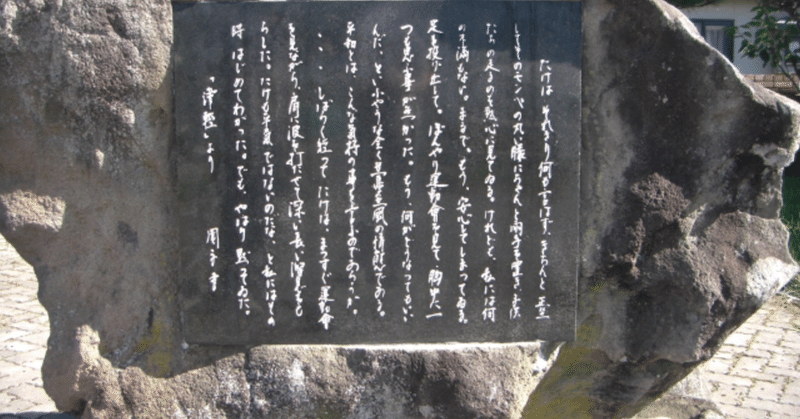 たけは それきり何も言はず、きちんと正座
してそのモンペの丸い膝にちやんと両手を置き、子供
たちの走るのを熱心に見てゐる。けれども、私には何
の不満もない。まるで、もう、安心してしまつてゐる。
足を投げ出して、ぼんやり運動會を見て、胸中に一
つも思ふ事が無かつた。もう、何がどうなつてもいい
んだ、といふやうな全く無憂無風の情態である。
平和とは、こんな気持の事を言ふのであらうか。
、、 しばらく経つてたけは、まつすぐ運動會
を見ながら、肩に波を打たせて深い長い溜息をも
らした。たけも平気ではないのだな、と私にはその
時はじめてわかつた。でも、やはり黙つてゐた。
「津軽」より